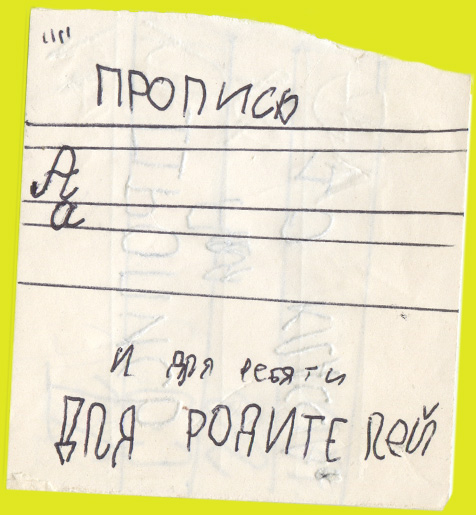 ""
ПРОПИСЬ
А
а
И для ребяти
ДЛЯ РОДИТЕЛЕЙ